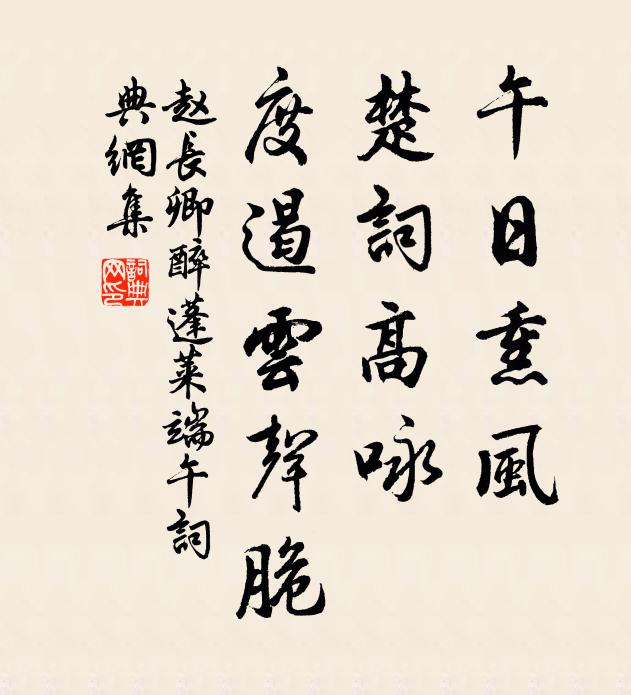 午日熏風
楚詞高咏
度遏雲聲脆
赵長卿醉蓬萊端午詞
典網集
詞典网印